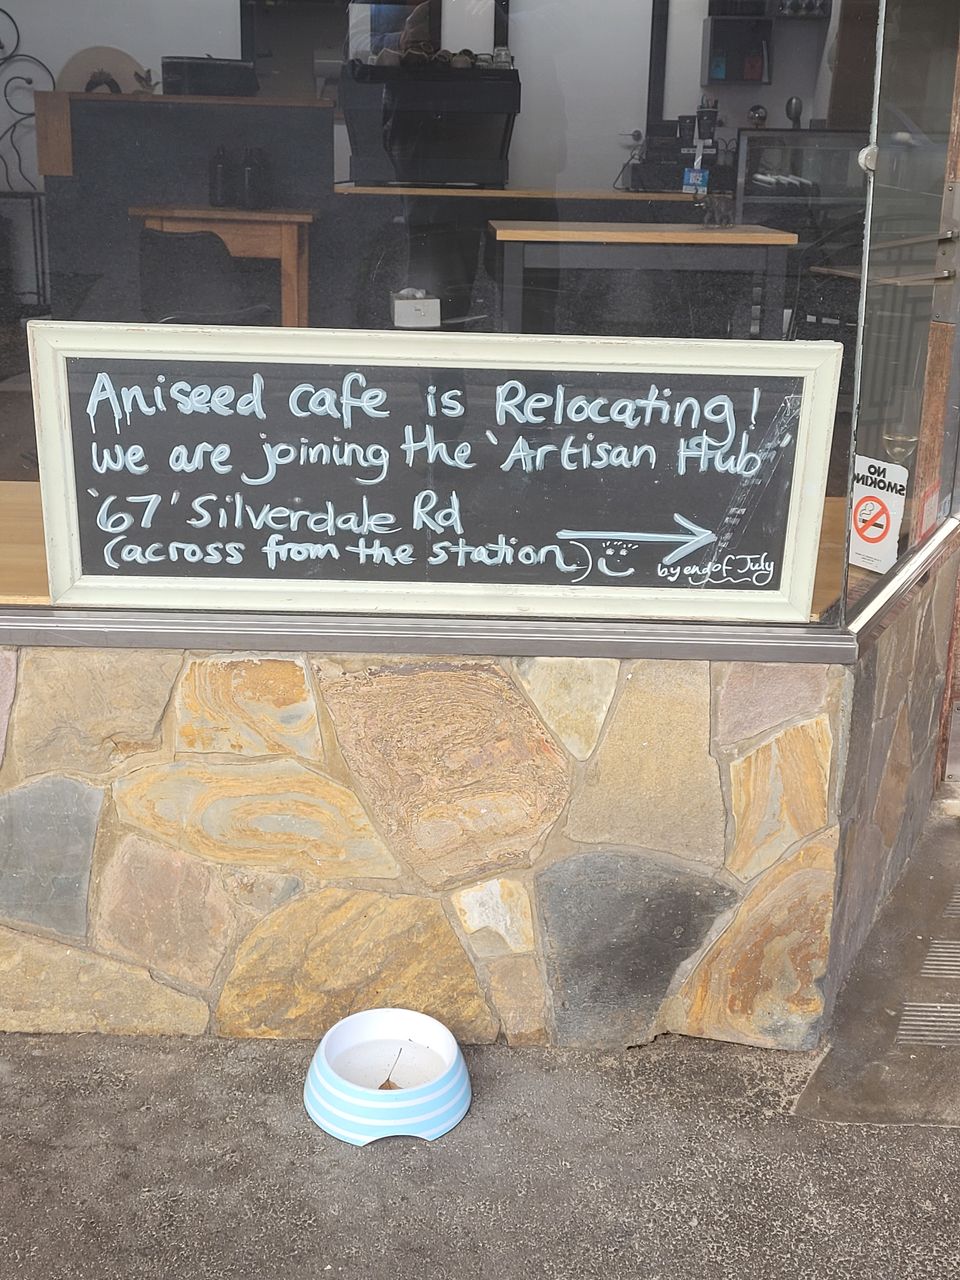 Aniseed cafe is Relocating!
we are joining the 'Artisan Hub'
'67' Silverdale Rd
(across from the station)
by end of July
NO
SMOKING